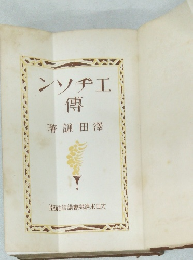 エヂソン
傳
澤田謙著